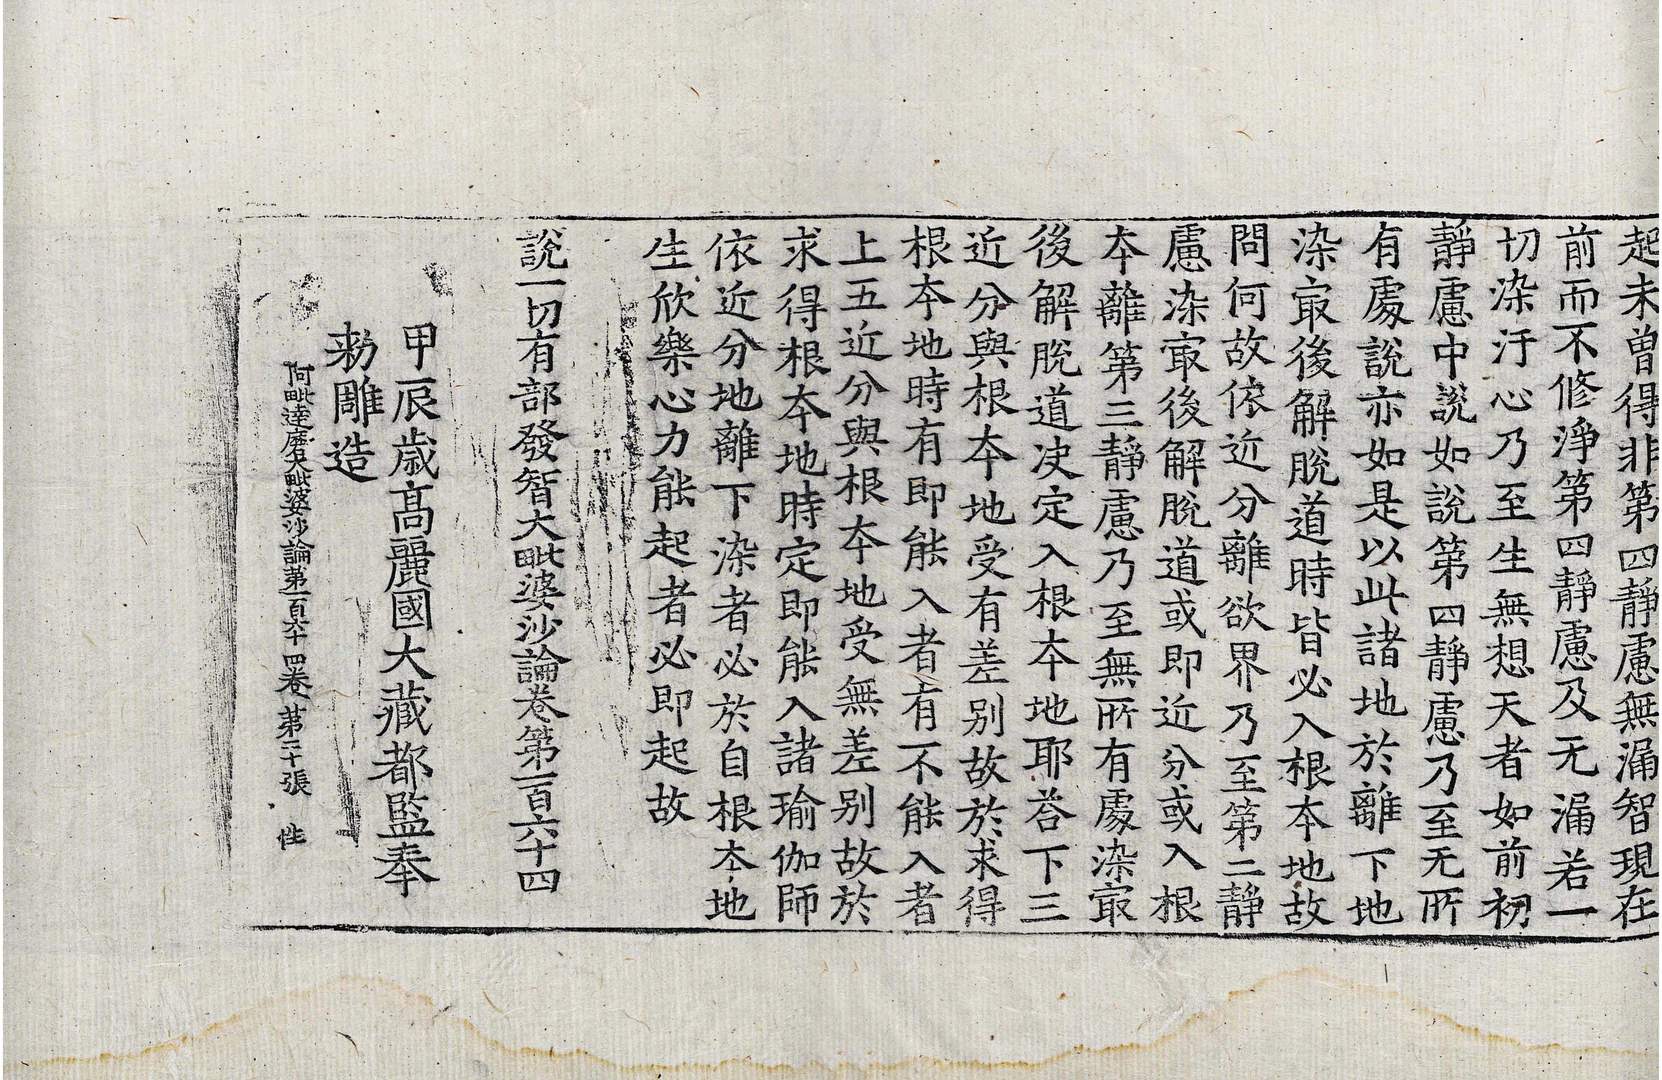 起未曾得非第四靜慮無漏智現在
前而不修淨第四靜慮及无漏若一
切染汙心乃至生無想天者如前初
靜慮中說如說第四靜慮乃至无所
有處說亦如是以此諸地於離下地
染㝡後解脫道時皆必入根本地故
問何故依近分離欲界乃至第二靜
慮染㝡後解脫道或即近分或入根
本離第三靜慮乃至無所有處染㝡
後解脫道决定入根本地耶荅下三
近分與根本地受有差别故於求得
根本地時有即能入者有不能入者
上五近分與根本地受無差别故於
求得根本地時定即能入諸瑜伽師
依近分地離下染者必於自根本地
生欣樂心力能起者必即起故
說一切有部發智大毗婆沙論卷第一百六十四
甲辰歳高麗國大藏都監奉
勑雕造
阿毗達磨大毗婆沙論第一百六十四卷 第二十張 性